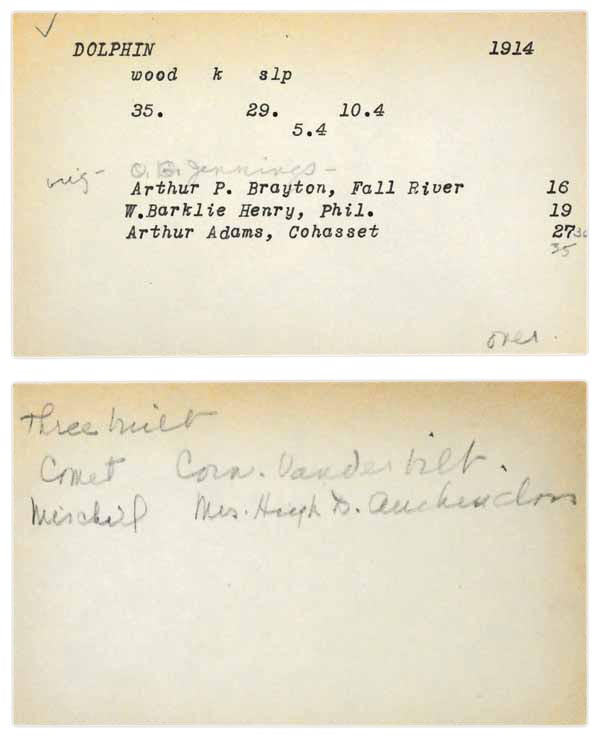 ✓
DOLPHIN 1914
wood k slp
35. 29. 10.4
5.4
orig- O.G. Jennings-
Arthur P. Brayton, Fall River 16
W.Barklie Henry, Phil. 19
Arthur Adams, Cohasset 27 30
35
over.
Three built
Comet Corn. Vanderbilt.
Mischief Mrs. Hugh D. Auchincloss